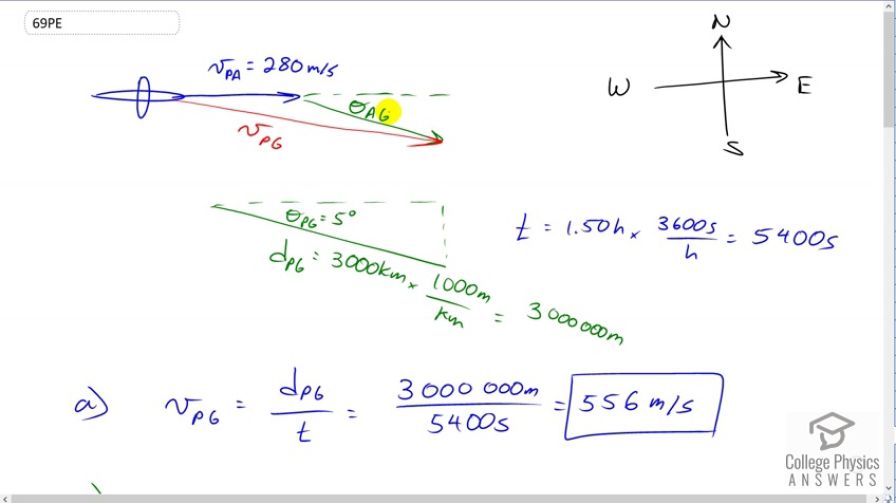 69PE
N
W E
S
v_PA = 280 m/s
θ_AG
v_PG
θ_PG = 5°
d_PG = 3000km × 1000m/km = 3000000m
t = 1.50h × 3600s/h = 5400s
a) v_PG = d_PG/t = 3000000m/5400s = 556 m/s
College Physics
ANSWERS